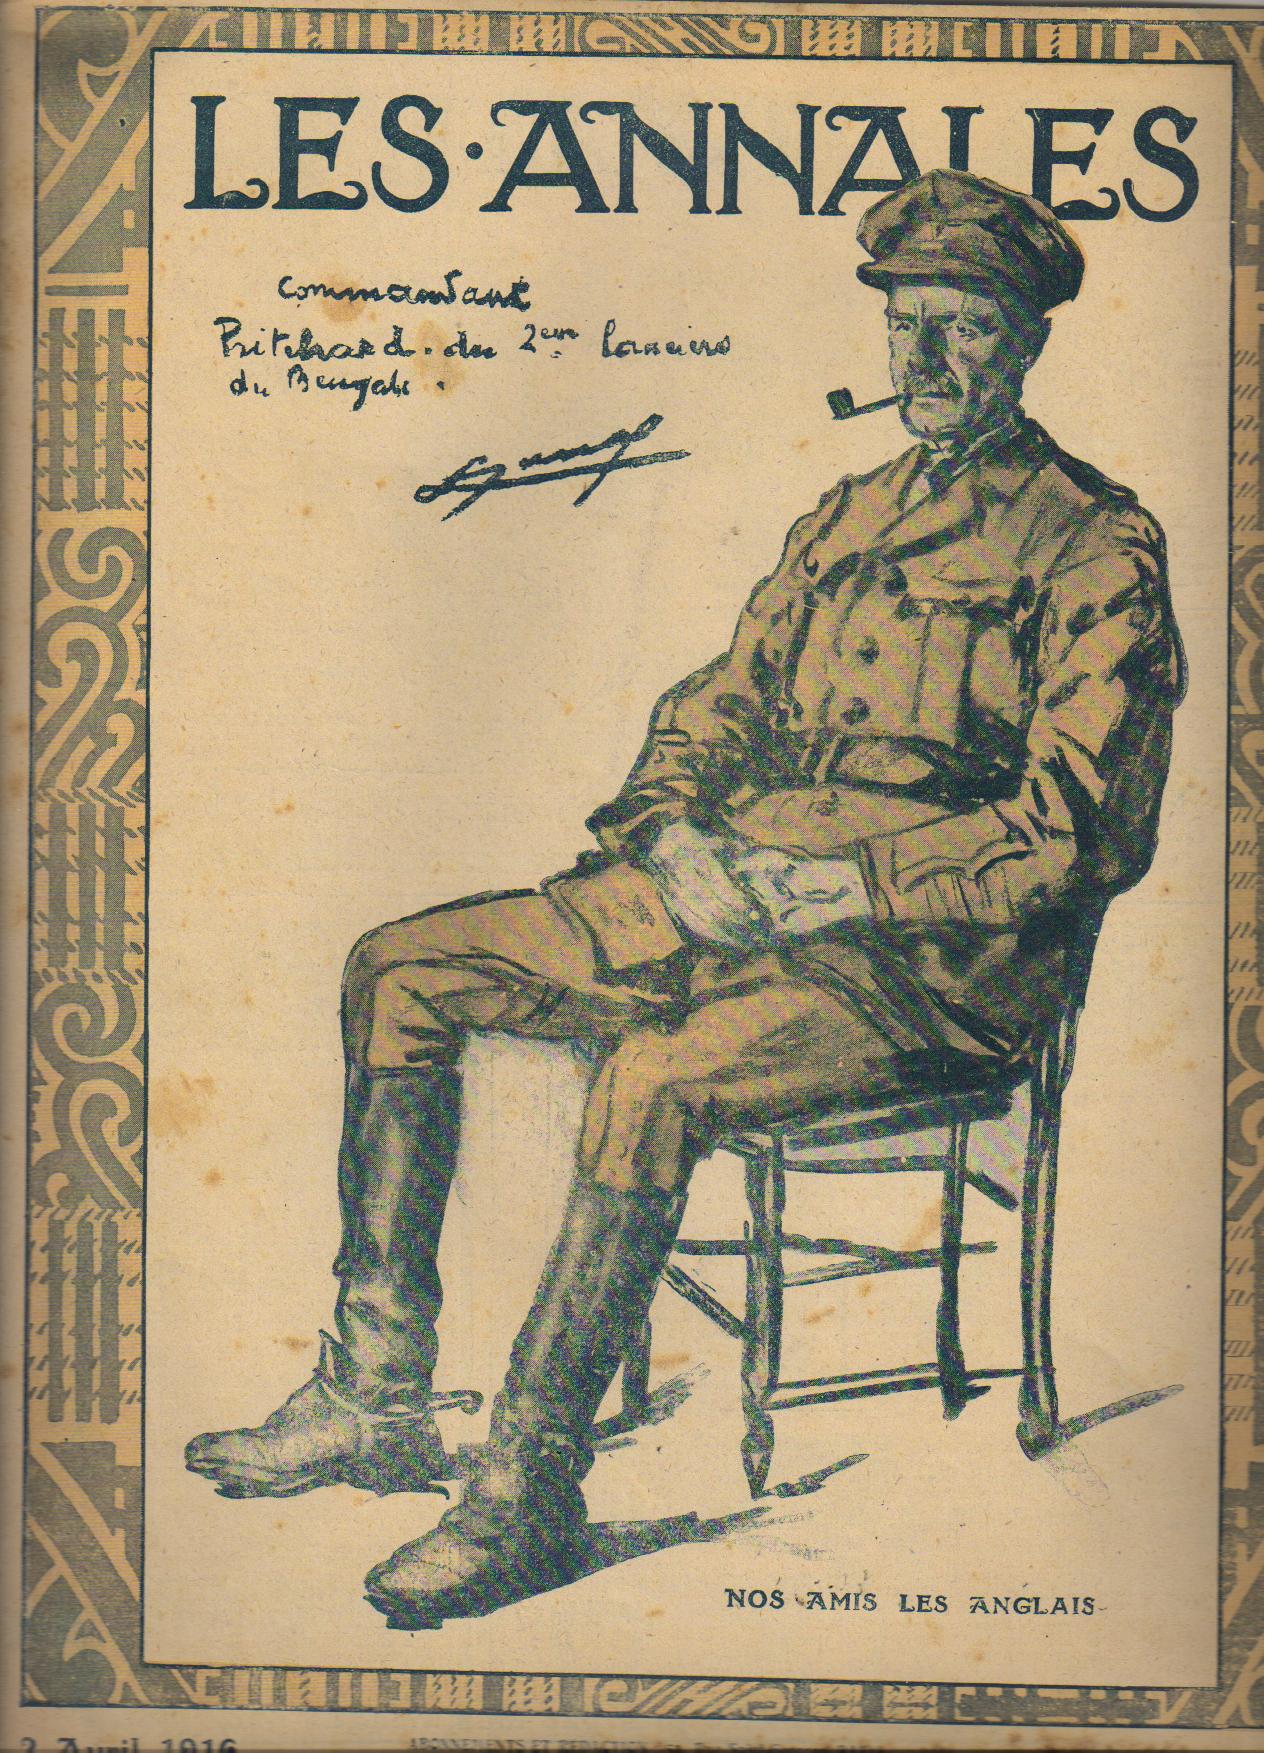 LES·ANNALES
Commandant
Pritchard. du 2eme lanciers
du Bengale.
NOS AMIS LES ANGLAIS
2 Avril 1916
ABONNEMENTS ET RÉDACTION